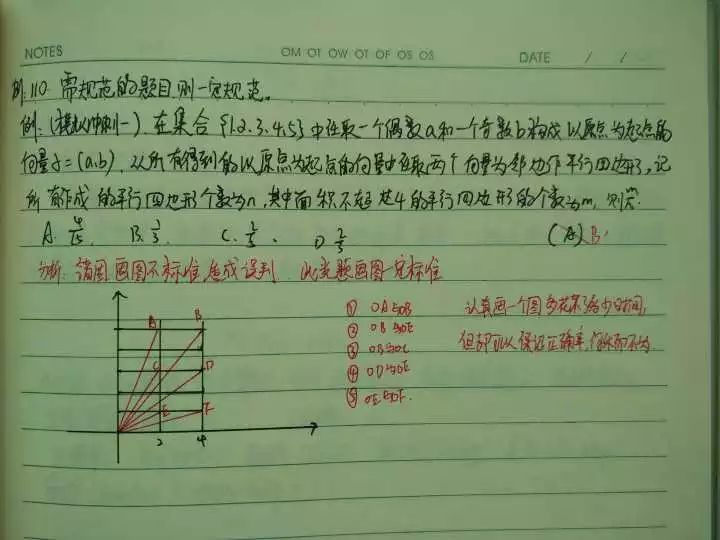 NOTES OM OT OW OT OF OS OS DATE / /
例:110 需规范的题目则一定规范。
例:(模拟冲刺一) 在集合{1.2.3.4.5}中任取一个偶数a和一个奇数b构成以原点为起点的
向量α=(a.b), 从所有得到的以原点为起点的向量中任取两个向量为邻边作平行四边形,记
所有作成的平行四边形个数为n,其中面积不超过4的平行四边形的个数为m,则
A. 4/15 B. 1/3 C. 2/5 D 2/3 (A) B
分析: 画图不标准,造成误判. 此类题画图一定标准
① OA与OB 认真画一个图多花不了多少时间,
② OB与OE 但却可以保证正确率,何乐而不为
③ OB与OC
④ OD与OE
⑤ OE与OF.
A B
C D
E F
2 4